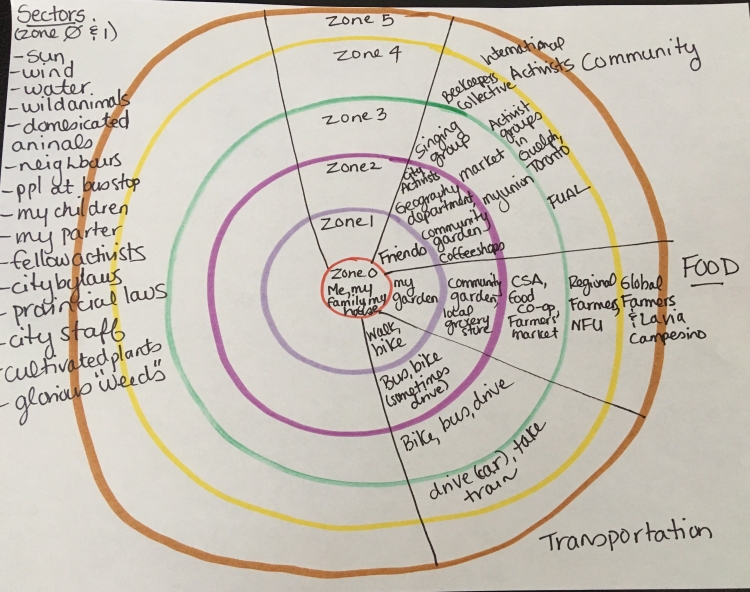 Sectors
(zone Ø & 1)
- sun
- wind
- water
- wild animals
- domesicated
animals
- neighbours
- ppl at bus stop
- my children
- my parter
- fellow activists
- city bylaws
- provincial laws
- city staff
- cultivated plants
- glorious "weeds"
Zone 5
Zone 4
Zone 3
Zone 2
Zone 1
Zone 0
Me, my
family, my
house
Community
International
Activists
Beekeepers
Collective
Activist
groups
in
Guelph,
Toronto
FUAL
Singing
group
City
Activists
market
Geography
department,
my union
community
garden,
coffeeshops
Friends
FOOD
my
garden
Community
garden
local
grocery
store
CSA,
food
co-op,
Farmers'
market
Regional
Farmers,
NFU
Global
Farmers
& La Via
Campesino
Transportation
walk,
bike
Bus, bike
(sometimes
drive)
Bike, bus, drive
drive (car), take
train